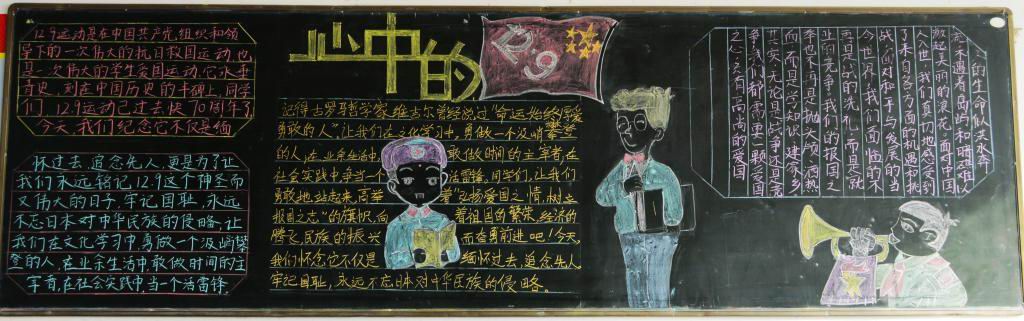 12.9运动是在中国共产党组织和领
导下的一次伟大的抗日救国运动,也
是一次伟大的学生爱国运动,它永垂
青史,刻在中国历史的丰碑上,同学
们,12.9运动已过去快70周年了
今天,我们纪念它不仅是缅
怀过去,追念先人,更是为了让
我们永远铭记,12.9这个神圣而
又伟大的日子,牢记国耻,永远
不忘日本对中华民族的侵略,让
我们在文化学习中勇做一个汲峭攀
登的人,在业余生活中,敢做时间的主
宰者,在社会实践中,当一个活雷锋,
心中的
12.9
记得古罗马哲学家,维吉尔曾经说过“命运始终厚爱
勇敢的人”,让我们在文化学习中,勇做一个汲峭攀登
的人,在业余生活中 敢做时间的主宰者,在
社会实践中争当一个 活雷锋,同学们,让我们
勇敢地站起来,高举 着“弘扬爱国之情,树立
报国之志”的旗帜,向 着祖国的繁荣,经济的
腾飞,民族的振兴 而奋勇前进吧!今天,
我们怀念它不仅是 缅怀过去,追念先人
牢记国耻,永远不忘日本对中华民族的侵略。
人的生命似洪水奔
不遇着岛屿和暗礁难以
激起美丽的浪花,面对中国
入世,我们真切地感受到
了来自各方面的机遇和挑
战,面对和平与发展的当
今世界,我们面临的不
再是战的洗礼,而是就
业的竞争,我们的报国之
举也不再是抛头颅洒热
而是学知识建家乡
其实,无论是战争还是竞
争,我们都需要一颗爱国
之心,一次次高尚的爱国